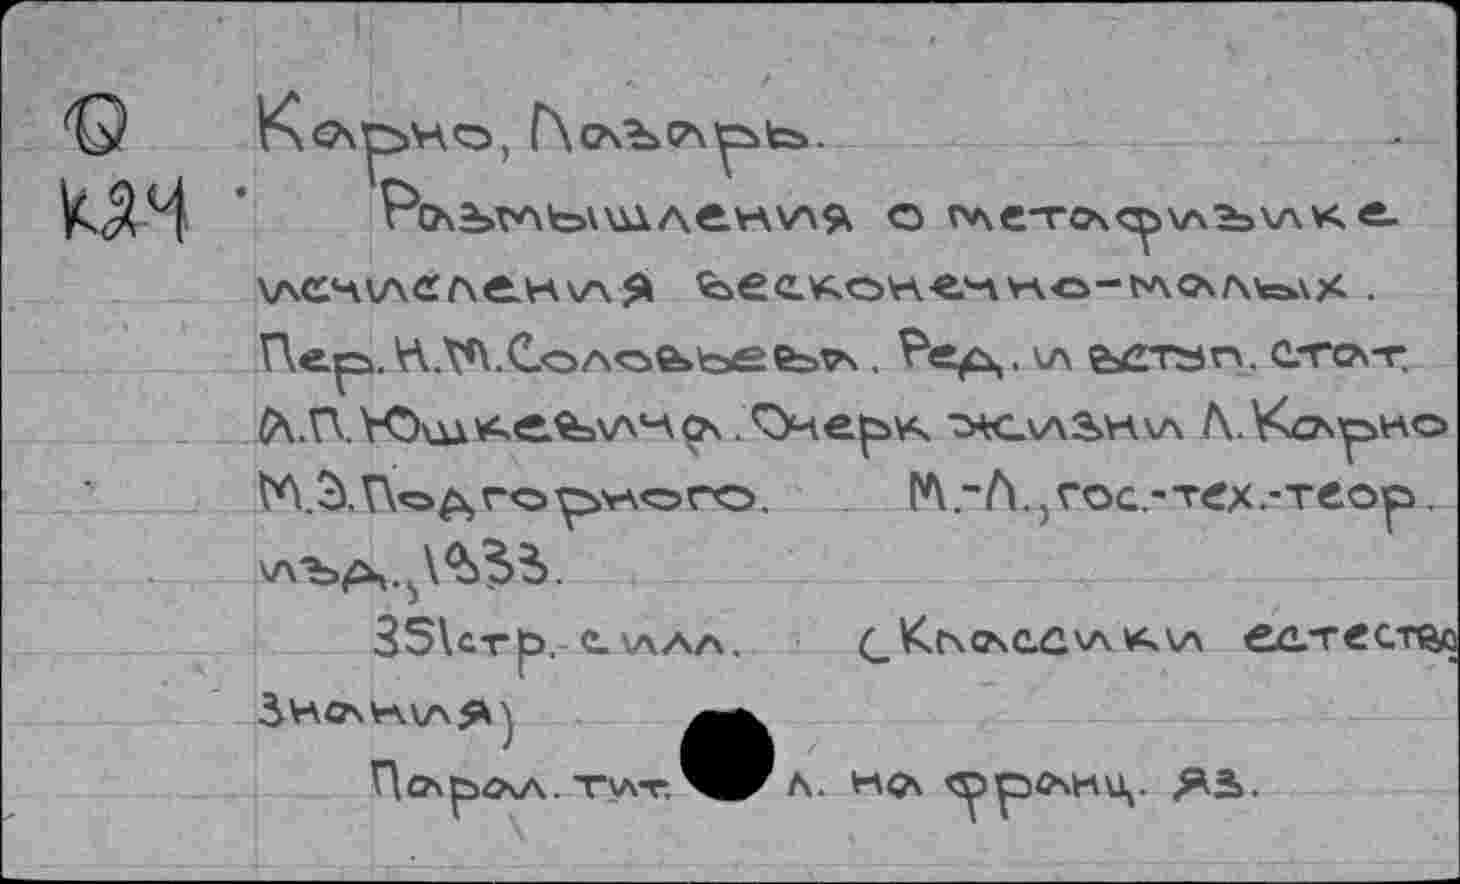 Ф Карно, Лазарь.
К24 Размышления о метафизике
исчисления бесконечно-малых.
Пер. Н.М.Соловьева. Ред. и вступ. стат.
А.П.Юшкевича. Очерк жизни Л.Карно
М.Э.Подгорного. М.-Л., гос.-тех.-теор.
изд., 1933.
351стр. с илл. (Классики естество
знания)
Парал. тит. л. на франц. яз.